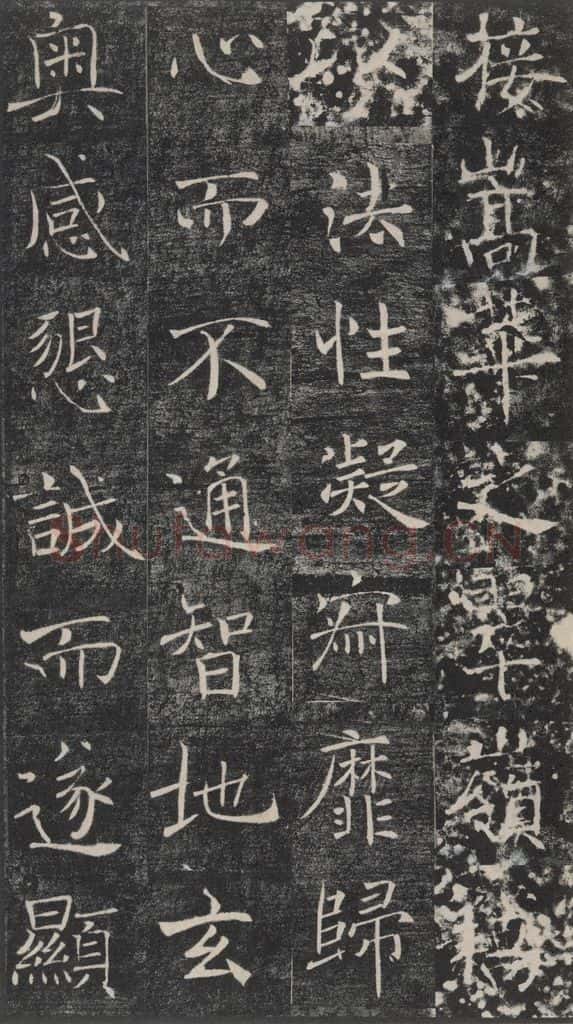 接嵩華之翠嶺竊
以法性凝寂靡歸
心而不通智地玄
奧感懇誠而遂顯
Shufawang.CN